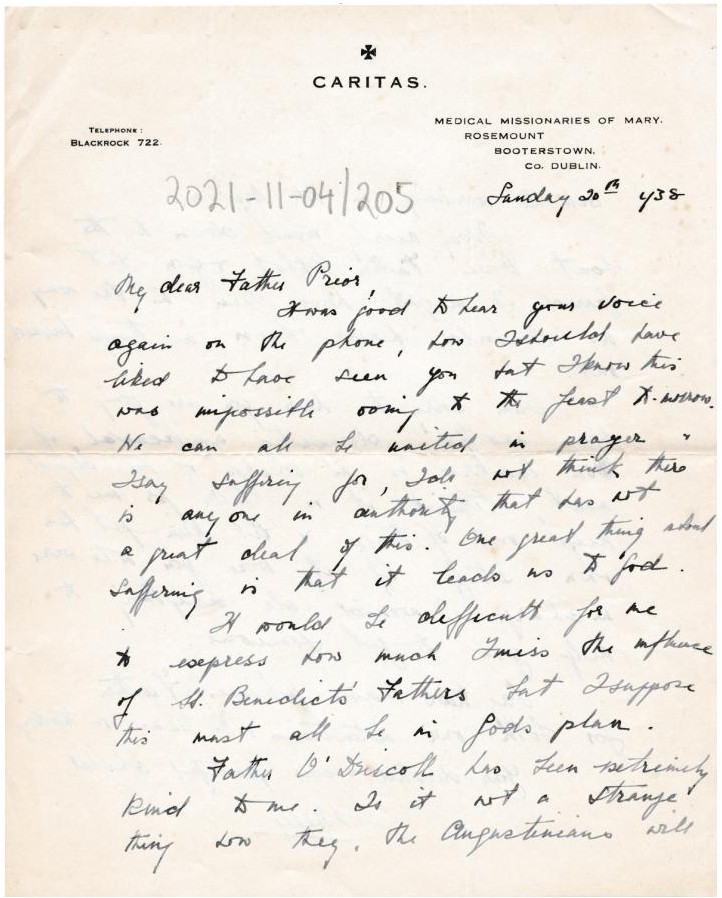 CARITAS.
TELEPHONE:
BLACKROCK 722.
MEDICAL MISSIONARIES OF MARY.
ROSEMOUNT
BOOTERSTOWN,
CO. DUBLIN.
2021-11-04/205
Sunday 20th
My dear Father Prior,
It was good to hear your voice
again on the phone, how I should have
liked to have seen you but I know this
was impossible owing to the feast to-morrow.
We can all be united in prayer
I say suffering for, I do not think there
is anyone in authority that has not
a great deal of this. One great thing about
suffering is that it leads us to God.
It would be difficult for me
to express how much I miss the influence
of St. Benedict's Fathers but I suppose
this must all be in Gods plan.
Father O'Driscoll has been extremely
kind to me. Is it not a strange
thing how they, the Augustinians will